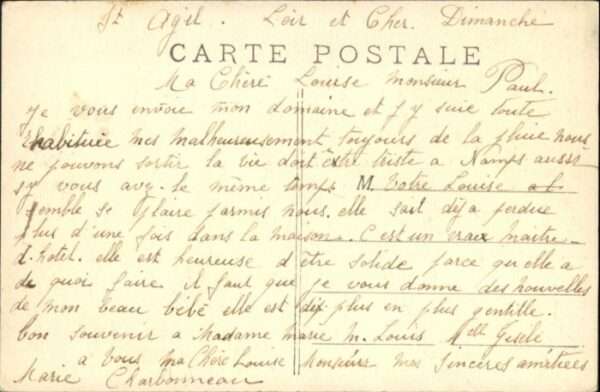 St Agil. Loir et Cher. Dimanche
CARTE POSTALE
Ma Chère Louise Monsieur Paul.
Je vous envoie mon domaine et j'y suis toute
habituée mes malheureusement toujours de la pluie nous
ne pouvons sortir la vie doit être triste a Namps aussi
sy vous avez le même temps M. Votre Louise a l
semble se plaire parmis nous. elle sait déja perdue
plus d'une fois dans la maison. C est un vrai maitre
d. hotel. elle est heureuse d être solide parce qu elle a
de quoi faire il faut que je vous donne des nouvelles
de mon beau bébé elle est de plus en plus gentille.
bon souvenir a Madame Marie M. Louis Melle Gisele
a Vous ma Chère Louise Monsieur mes sinceres amitiées
Marie Charbonneau